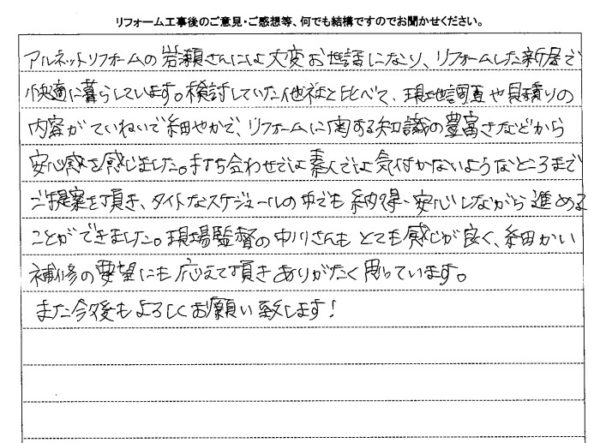 リフォーム工事後のご意見・ご感想等、何でも結構ですのでお聞かせください。
アルネットリフォームの岩瀬さんには大変お世話になり、リフォームした新居で
快適に暮らしています。検討していた他社と比べて、現地調査や見積りの
内容がていねいで細やかで、リフォームに関する知識の豊富さなどから
安心感を感じました。打ち合わせでは素人では気付かないようなところまで
ご提案を頂き、タイトなスケジュールの中でも納得・安心しながら進める
ことができました。現場監督の中川さんもとても感じが良く、細かい
補修の要望にも応えて頂きありがたく思っています。
また今後もよろしくお願い致します!